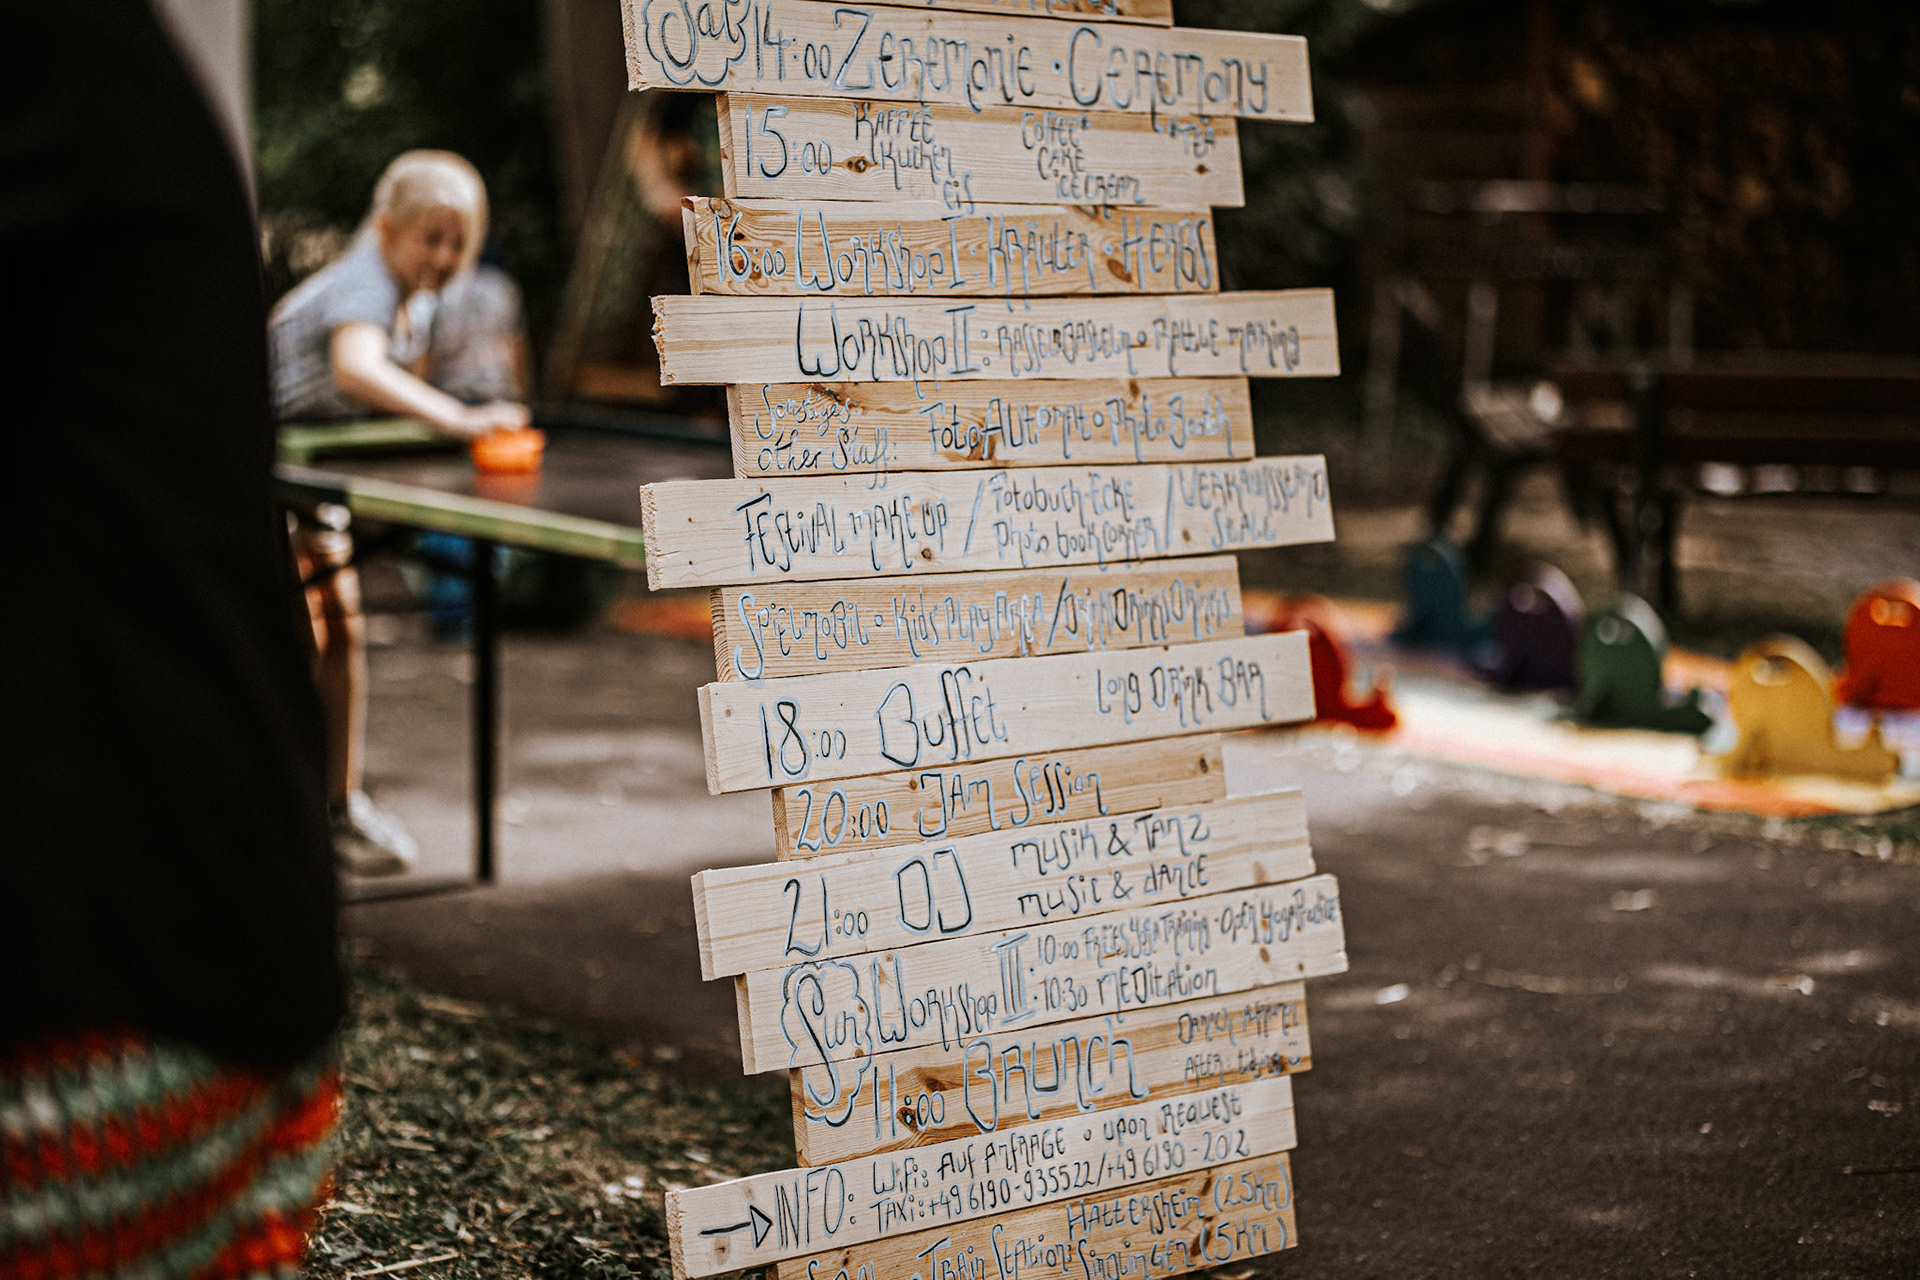 Sat 14:00 Zeremonie · Ceremony
15:00 Kaffee Coffee Tea
Kuchen Cake
Eis Icecream
16:00 Workshop I: Kräuter · Herbs
Workshop II: Rasselbasteln · Rattle making
Sonstiges: FotoAutomat · Photo Booth
Other Stuff:
Festival Make up / Fotobuch-Ecke / Verkaufsstand
Photo book corner Stall
Spielmobil · Kids Play Area / Drinks Drinks Drinks
18:00 Buffet Long Drink Bar
20:00 Jam Session
21:00 DJ Musik & Tanz
music & dance
Sun Workshop III: 10:00 Freies Yoga Training · Open Yoga Practice
10:30 Meditation
11:00 Brunch Danach
After: tidying
INFO: Wifi: Auf Anfrage · upon Request
Taxi: +49 6190-935522/+49 6190-2012
Train Station: Hattersheim (2.5km)
(5km)